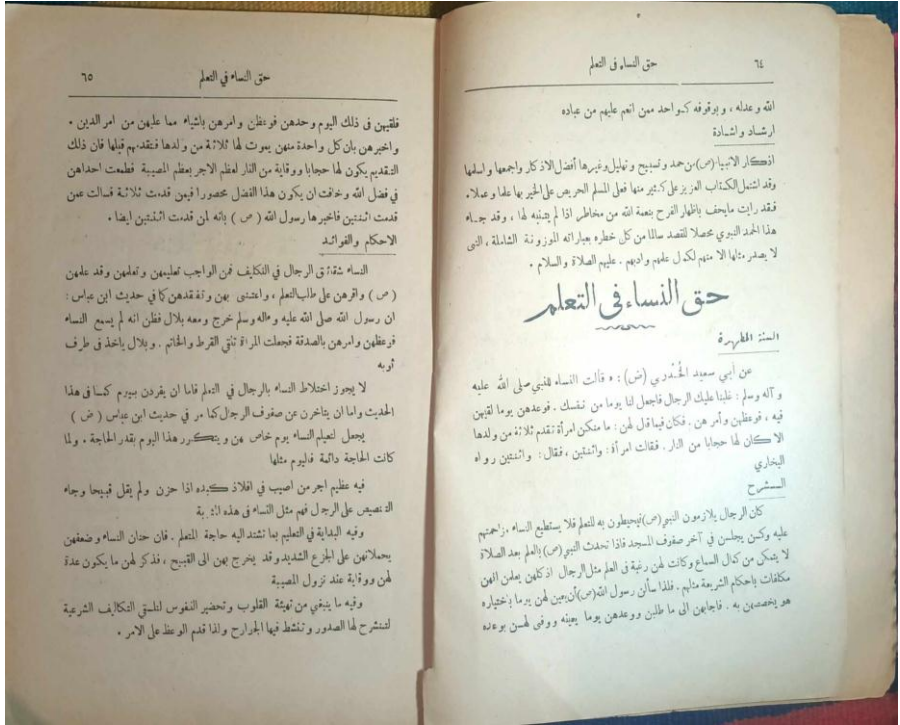 ٦٤ حق النساء فى التعلم
الله وعدله ، وبوقوفه كواحد ممن انعم عليهم من عباده
ارشاد واشادة
اذكار الانبياء (ص) من حمد وتسبيح وتهليل وغيرها أفضل الاذكار واجمعها واسلمها
وقد اشتمل الكتاب العزيز على كثير منها فعلى المسلم الحريص على الخير بها علما وعملا ،
فقد رايت مايحف باظهار الفرح بنعمة الله من مخاطر اذا لم يتنبه لها ، وقد جاء
هذا الحمد النبوي محصلا للقصد سالما من كل خطره بعباراته الموزونة الشاملة ، التى
لا يصدر مثلها الا منهم لكمال علمهم وادبهم . عليهم الصلاة والسلام .
حق النساء فى التعلم
السنة المطهرة
عن أبي سعيد الخُدْري (ض) : « قالت النساء للنبي صلى الله عليه
وآله وسلم : غلبنا عليك الرجال فاجعل لنا يوما من نفسك . فوعدهن يوما لقيهن
فيه ، فوعظهن وأمرهن . فكان فيما قال لهن : ما منكن امرأة تقدم ثلاثة من ولدها
الا كان لها حجابا من النار . فقالت امرأة : واثنتين ، فقال : واثنتين رواه
البخاري
الشرح
كان الرجال يلازمون النبي (ص) فيحيطون به للتعلم فلا يستطيع النساء مزاحمتهم
عليه وكن يجلسن في آخر صفوف المسجد فاذا تحدث النبي (ص) بالعلم بعد الصلاة
لا يتمكن من كمال السماع وكانت لهن رغبة فى العلم مثل الرجال اذ كلهن يعلمن انهن
مكلفات باحكام الشريعة مثلهم . فلذا سألن رسول الله (ص) أن يعين لهن يوما باختياره
هو يخصصهن به . فاجابهن الى ما طلبن ووعدهن يوما يعينه ووفى لهن بوعده
حق النساء في التعلم ٦٥
فلقيهن فى ذلك اليوم وحدهن فوعظهن وامرهن باشياء مما عليهن من امر الدين .
واخبرهن بان كل واحدة منهن يموت لها ثلاثة من ولدها فتقدمهم قبلها فان ذلك
التقديم يكون لها حجابا ووقاية من النار لعظم الاجر بعظم المصيبة فطمعت احداهن
في فضل الله وخافت ان يكون هذا الفضل محصورا فيمن قدمت ثلاثة فسالت عمن
قدمت اثنتين فاخبرها رسول الله ( ص ) بانه لمن قدمت اثنتين ايضا .
الاحكام والفوائد
النساء شقائق الرجال في التكليف فمن الواجب تعليمهن وتعلمهن وقد علمهن
( ص ) واقرهن على طلب التعلم ، واعتنى بهن وتفقدهن كما في حديث ابن عباس :
ان رسول الله صلى الله عليه وءاله وسلم خرج ومعه بلال فظن انه لم يسمع النساء
فوعظهن وامرهن بالصدقة فجعلت المراة تلقي القرط والخاتم . وبلال ياخذ فى طرف
ثوبه
لا يجوز اختلاط النساء بالرجال في التعلم فاما ان يفردن بيوم كما فى هذا
الحديث واما ان يتاخرن عن صفوف الرجال كما مر في حديث ابن عباس ( ض )
يجعل لتعليم النساء يوم خاص بهن ويتكرر هذا اليوم بقدر الحاجة ، ولما
كانت الحاجة دائمة فاليوم مثلها
فيه عظيم اجر من اصيب في افلاذ كبده اذا حزن ولم يقل قبيحا وجاء
التنصيص على الرجال فهم مثل النساء فى هذه
وفيه البداية في التعليم بما تشتد اليه حاجة المتعلم . فان حنان النساء وضعفهن
يحملانهن على الجزع الشديد وقد يخرج بهن الى القبيح ، فذكر لهن ما يكون عدة
لهن ووقاية عند نزول المصيبة
وفيه ما ينبغي من تهيئة القلوب وتحضير النفوس لتلقي التكاليف الشرعية
لتنشرح لها الصدور وتنشط فيها الجوارح ولذا قدم الوعظ على الامر .